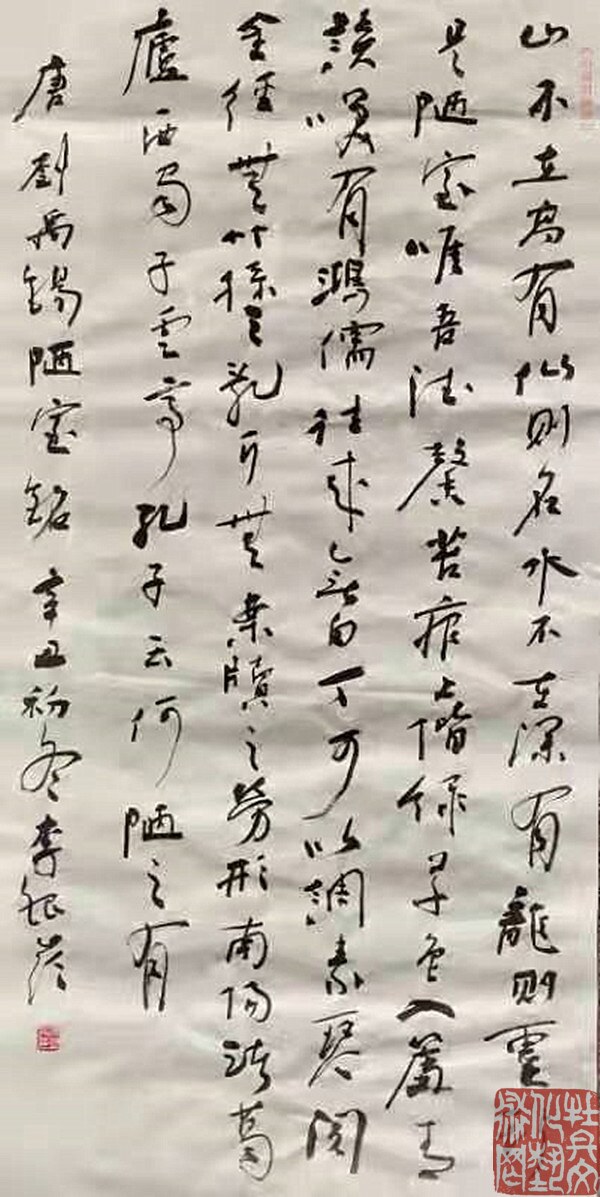 山不在高有仙则名水不在深有龍则靈
是陋室唯吾德馨苔痕上階緑草色入簾青
談笑有鴻儒往来无白丁可以調素琴閲
金經無丝竹之亂耳無案牘之勞形南陽诸葛
廬西蜀子雲亭孔子云何陋之有
唐劉禹锡陋室銘辛丑初冬李